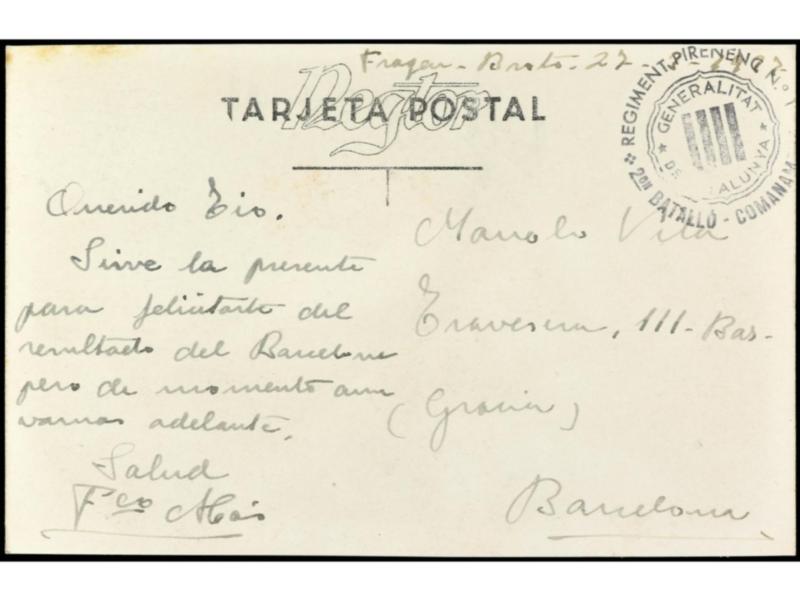 Fragen - Broto - 27 - - 1937
TARJETA POSTAL
REGIMENT PIRENENC N.º 1
GENERALITAT
DE CATALUNYA
2on BATALLÓ - COMANAM
Querido Tio.
Sirve la presente
para felicitarte del
resultado del Barcelona
pero de momento aun
vamos adelante.
Salud
Fco Mas
Manolo Vila
Travesera, 111 - Bas -
(Gracia)
Barcelona